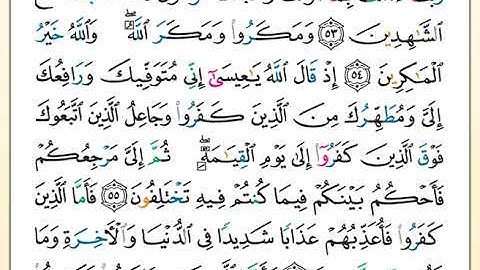 الشَّٰهِدِينَ ٥٣ وَمَكَرُوا۟ وَمَكَرَ ٱللَّهُ ۖ وَٱللَّهُ خَيْرُ
ٱلْمَٰكِرِينَ ٥٤ إِذْ قَالَ ٱللَّهُ يَٰعِيسَىٰٓ إِنِّى مُتَوَفِّيكَ وَرَافِعُكَ
إِلَىَّ وَمُطَهِّرُكَ مِنَ ٱلَّذِينَ كَفَرُوا۟ وَجَاعِلُ ٱلَّذِينَ ٱتَّبَعُوكَ
فَوْقَ ٱلَّذِينَ كَفَرُوٓا۟ إِلَىٰ يَوْمِ ٱلْقِيَٰمَةِ ۖ ثُمَّ إِلَىَّ مَرْجِعُكُمْ
فَأَحْكُمُ بَيْنَكُمْ فِيمَا كُنتُمْ فِيهِ تَخْتَلِفُونَ ٥٥ فَأَمَّا ٱلَّذِينَ
كَفَرُوا۟ فَأُعَذِّبُهُمْ عَذَابًا شَدِيدًا فِى ٱلدُّنْيَا وَٱلْءَاخِرَةِ وَمَا